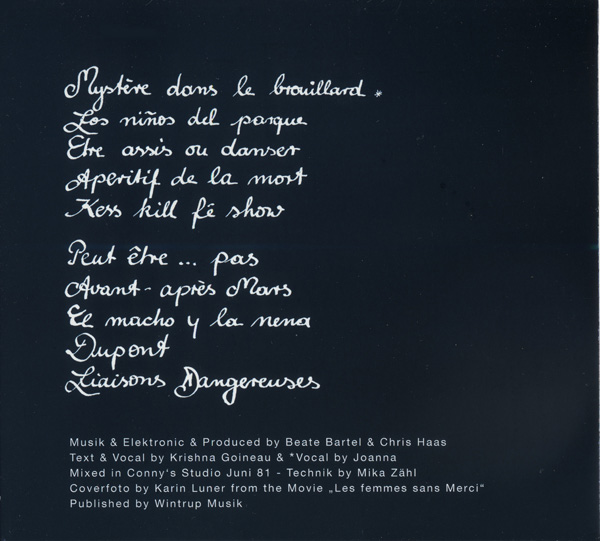 Mystère dans le brouillard *
Los niños del parque
Etre assis ou danser
Aperitif de la mort
Kess kill fê show
Peut être ... pas
Avant-après Mars
El macho y la nena
Dupont
Liaisons Dangereuses
Musik & Elektronic & Produced by Beate Bartel & Chris Haas
Text & Vocal by Krishna Goineau & *Vocal by Joanna
Mixed in Conny's Studio Juni 81 - Technik by Mika Zähl
Coverfoto by Karin Luner from the Movie „Les femmes sans Merci“
Published by Wintrup Musik